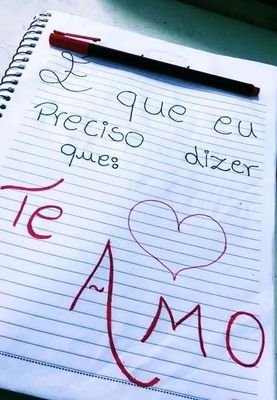 É que eu
Preciso dizer
que:
Te
Amo